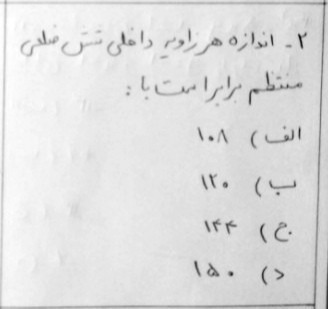 ۲- اندازه هر زاویه داخلی شش ضلعی
منتظم برابر است با :
الف) ۱۰۸
ب) ۱۲۰
ج) ۱۴۴
د) ۱۵۰